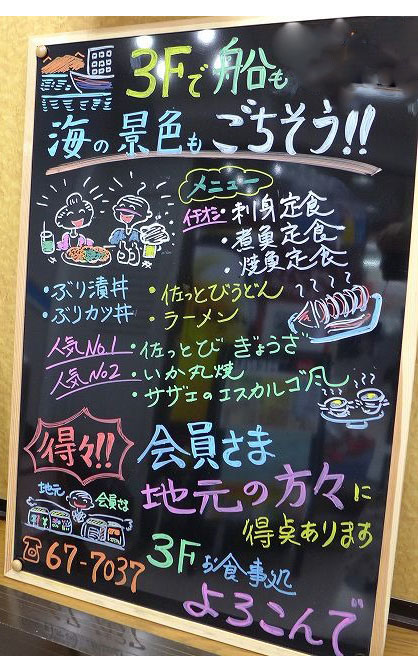 3Fで船も
海の景色もごちそう!!
メニュー
イチオシ・刺身定食
・煮魚定食
・焼魚定食
・ぶり漬丼
・ぶりカツ丼
・佐っとびうどん
・ラーメン
人気No1・佐っとびぎょうざ
人気No2・いか丸焼
・サザエのエスカルゴ風
得々!!
会員さま
地元の方々に
得点あります
地元
会員さま
☎67-7037
3Fお食事処
よろこんで